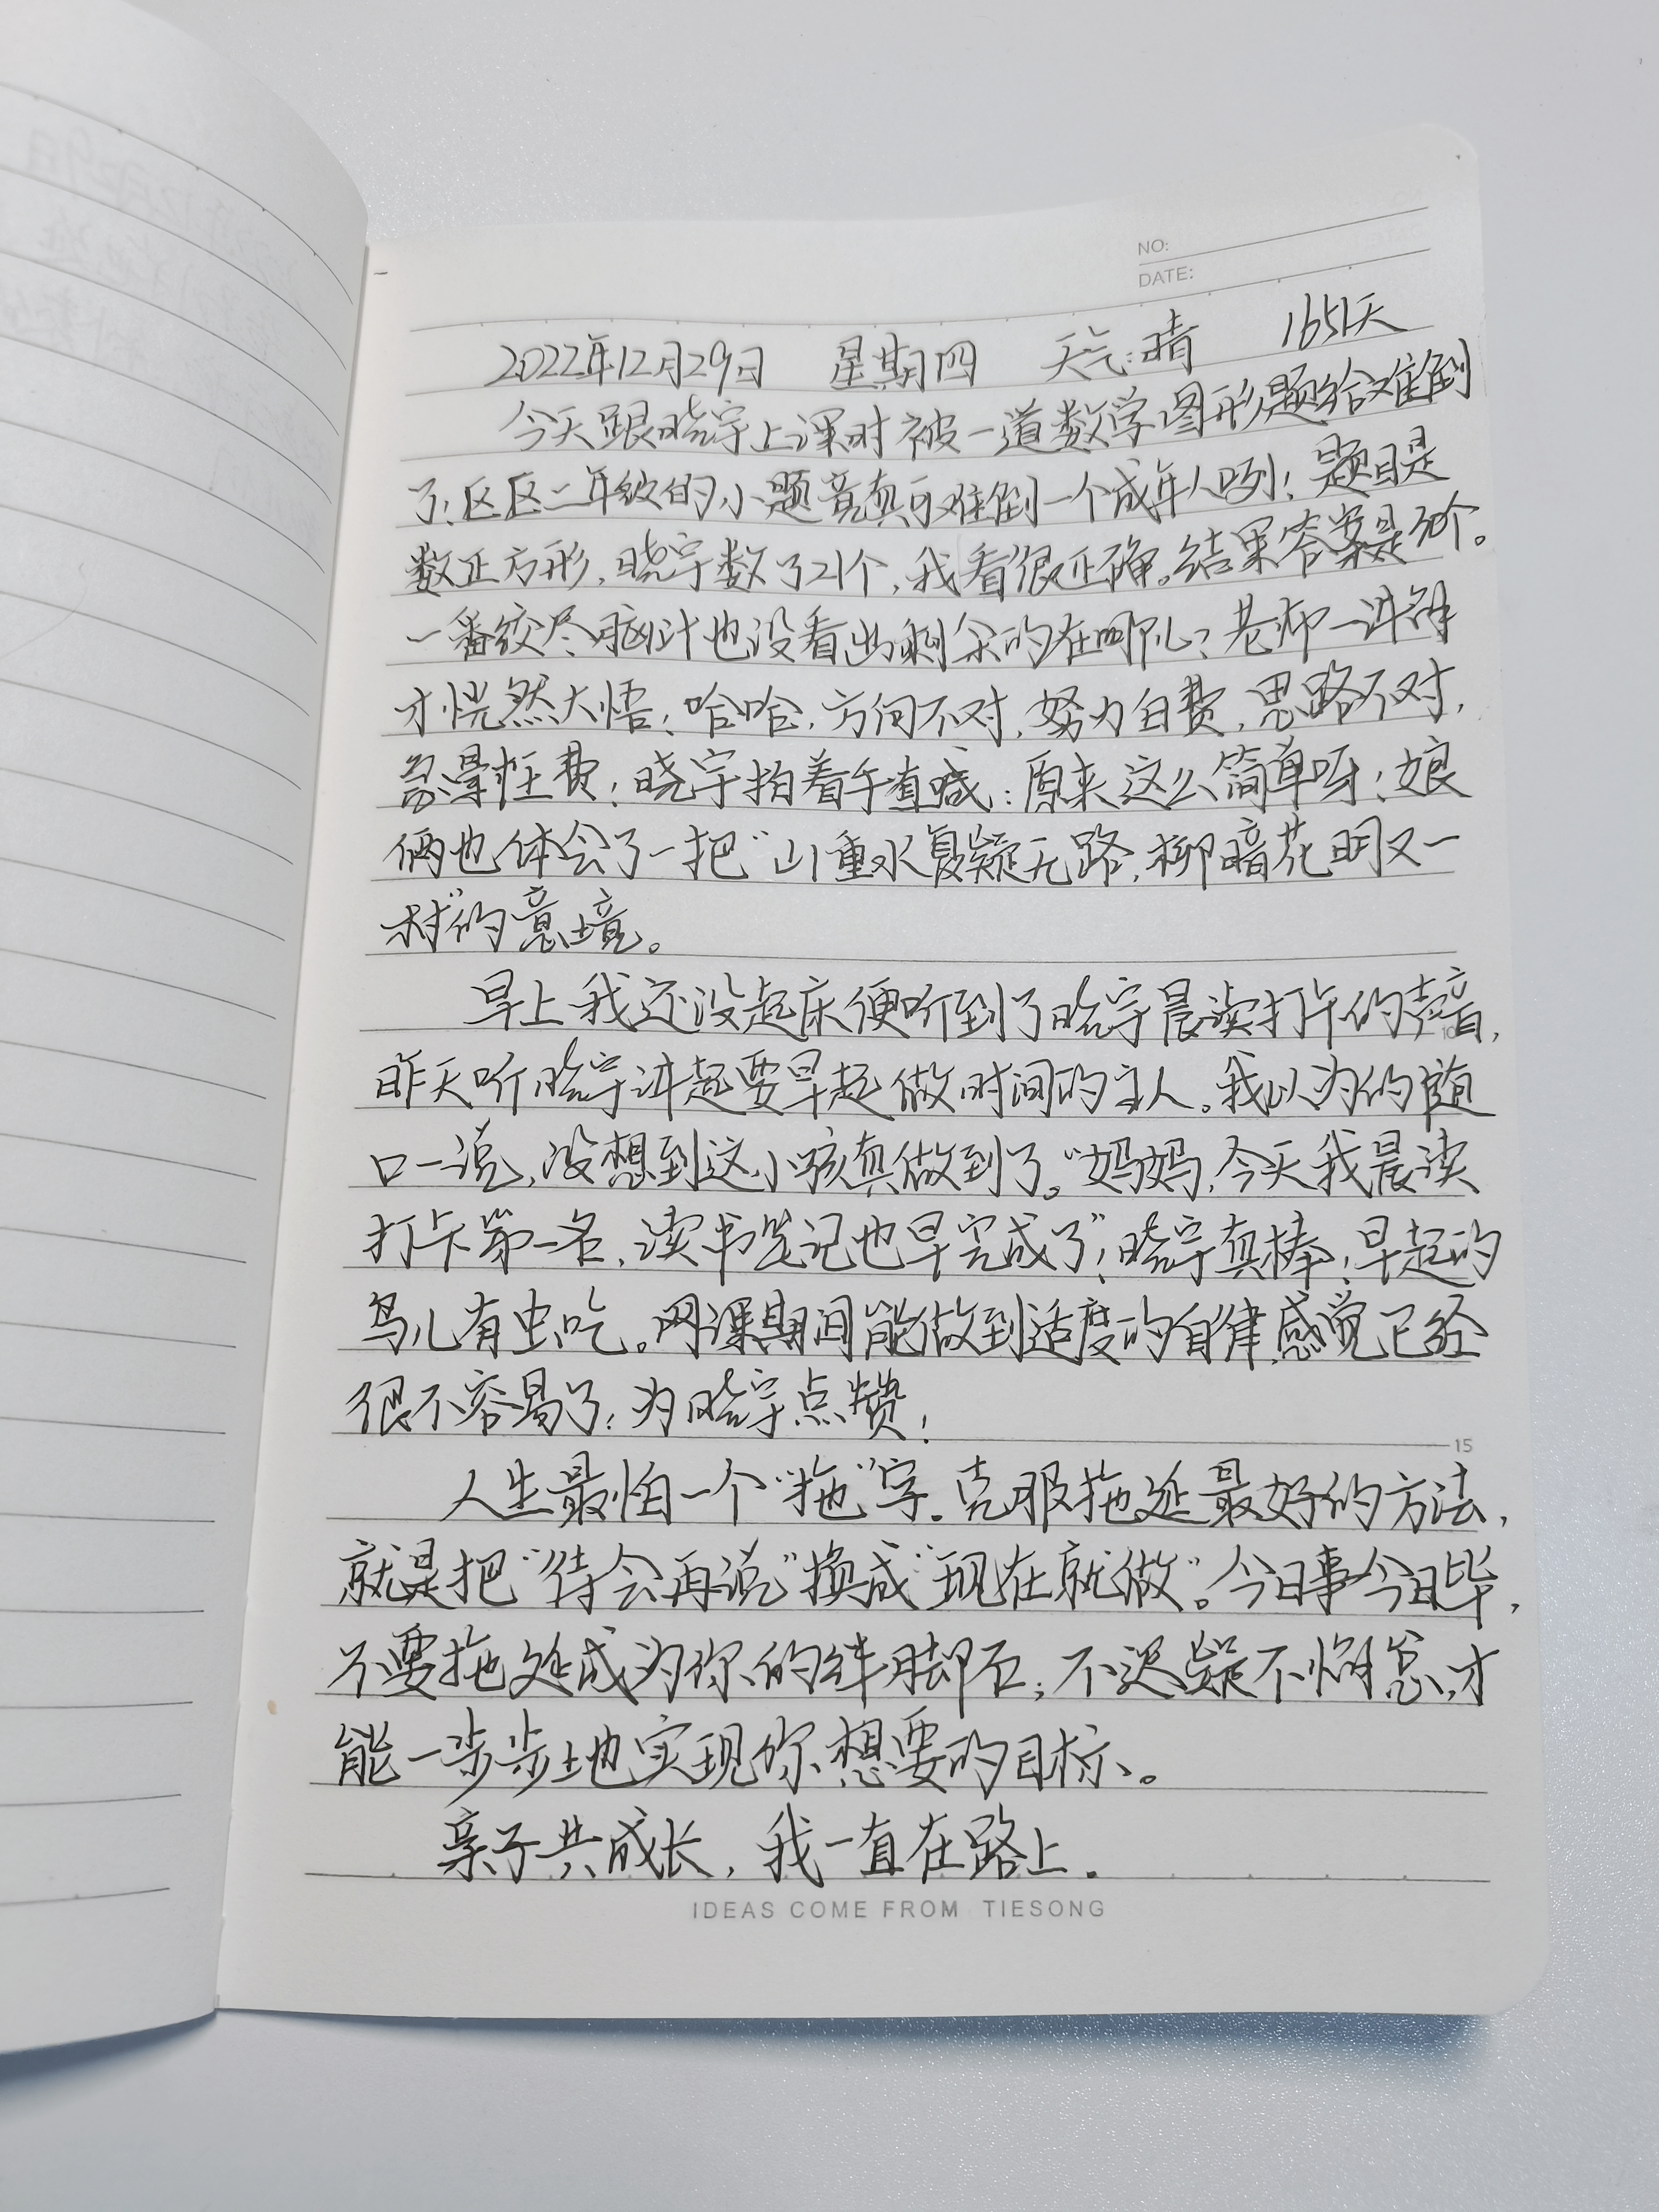 NO:
DATE:
2022年12月29日 星期四 天气:晴 1651天
今天跟晓宇上课时被一道数学图形题给难倒
了!区区二年级的小题竟真可难倒一个成年人咧!题目是
数正方形,晓宇数了21个,我看很正确。结果答案是30个。
一番绞尽脑汁也没看出剩余的在哪儿?老师一讲解
才恍然大悟!哈哈,方向不对,努力白费,思路不对,
晓宇拍着手直喊:原来这么简单呀!娘
俩也体会了一把“山重水复疑无路,柳暗花明又一
村”的意境。
早上我还没起床便听到了晓宇晨读打卡的声音,
昨天听晓宇讲起要早起做时间的主人。我以为的随
口一说,没想到这小孩真做到了。“妈妈,今天我晨读
打卡第一名,读书笔记也早完成了”!晓宇真棒!早起的
鸟儿有虫吃。网课期间能做到适度的自律感觉已经
很不容易了!为晓宇点赞!
人生最怕一个“拖”字.克服拖延最好的方法,
就是把“待会再说”换成“现在就做”。今日事今日毕,
不要拖延成为你的绊脚石;不迟疑不懈怠,才
能一步步地实现你想要的目标。
亲子共成长,我一直在路上.
10
15
IDEAS COME FROM TIESONG